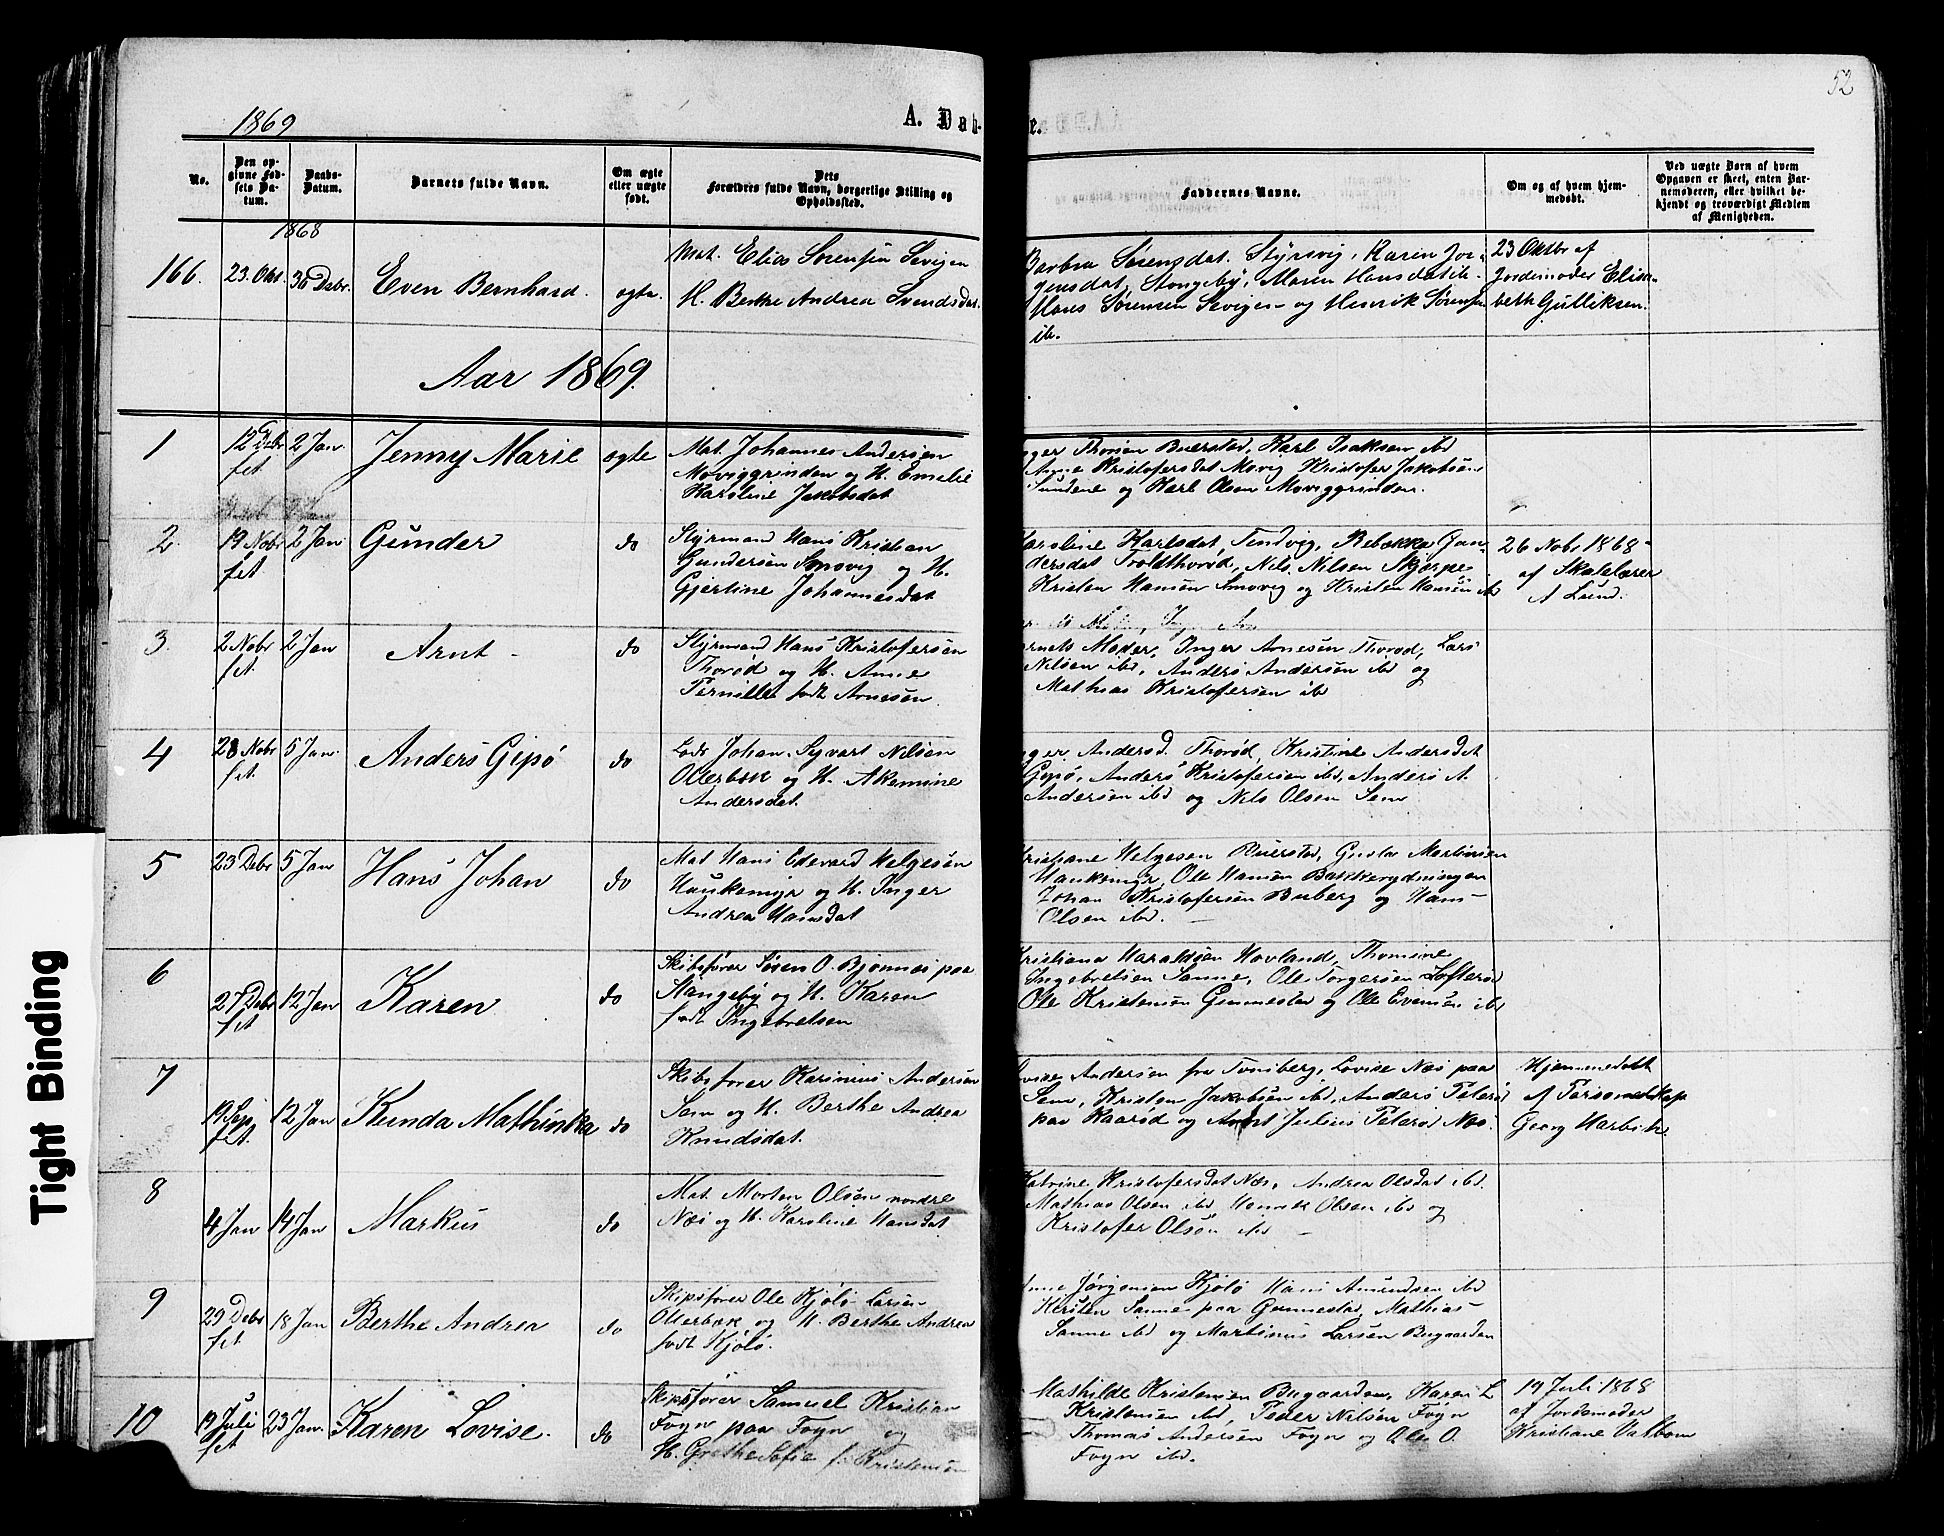 52
1869
A. Dab-
e.
No.
Den op-
givne Fød-
sels Da-
tum.
Daabs-
Datum.
Barnets fulde Navn.
Om ægte
eller uægte
født.
Dets
Forældres fulde Navn, borgerlige Stilling og
Opholdssted.
Faddernes Navne.
Om og af hvem hjem-
medøbt.
Ved uægte Børn af hvem
Opgaven er skeet, enten Bar-
nemoderen, eller hvilket be-
kjendt og troværdigt Medlem
af Menigheden.
1868
166. 23. Okt. 30 Debr. Even Bernhard. ægte.
Mat. Elias Sørensen Sevigen
H. Berthe Andrea Svendsdat.
Barbra Sørensdat. Styrsvig, Karen Jør-
gensdat Stongeby, Maren Hansdat ib.
Hans Sørensen Sevigen og Henrik Sørensen
ib.
23 Oktbr af
Jordemoder Elisa-
beth Gulliksen.
Aar 1869.
1 12 Debr fct. 2 Jan Jenny Marie ægte
Mat. Johannes Andersen
Moviggrinden og H. Emelie
Karoline Jakobsdat
Inger Thorsen Buerstad, Karl Isaksen ibd
Anne Kristofersdat Movig Kristofer Jakobsen
Sundene og Karl Olsen Moviggrinden.
2. 19 Nobr fct. 2 Jan Gunder do
Styrmand Hans Kristian
Gundersen Smovig og H.
Gjertine Johannesdat
Karoline Karlsdat, Tendvig, Rebekka Gun-
dersdat Troldthorød, Nils Nilsen Skjerpe
Kristen Hansen Smovig og Kristen Hansen ibd
26 Nobr 1868
af Skolelærer
A Lund.
3. 2 Nobr fct. 2 Jan Arnt do
Styrmand Hans Kristofersen
Thorød og H. Anne
Pernille født Arnesen.
Barnets Moder, Inger Arnesen Thorød, Lars
Nilsen ibd, Anders Andersen ibd og
Mathias Kristofersen ib
4 28 Nobr fct. 5 Jan. Anders Gipø do
Lods Johan Syvart Nilsen
Oterbæk og H. Akemine
Andersdat.
Inger Andersd. Thorød, Kristine Andersdat
Gipø, Anders Kristofersen ibd, Anders A
Andersen ibd og Nils Olsen Sem
5 23 Debr 5 Jan Hans Johan do
Mat Hans Edevard Helgesen
Haukemyr og H. Inger
Andrea Hansdat
Kristiane Helgesen Buerstad, Gustav Martinsen
Haukemyr, Ole Hansen Bakkerydningen
Johan Kristofersen Buberg og Hans
Olsen ibd.
6 27 Debr fct 12 Jan Karen do
Skibsfører Søren O. Bjønnes paa
Stangeby og H. Karen
født Ingebretsen
Kristiana Haraldsen Hovland, Thomine
Ingebretsen Sanne, Ole Torgersen Lofterød
Ole Kristensen Gunnestad og Ole Evensen ibd
7 19 Sep fct. 12 Jan Kunda Mathinka do
Skibsfører Karinius Andersen
Sem og H. Berthe Andrea
Knudsdat.
Lovise Andersen fra Tønsberg, Lovise Næs paa
Sem, Kristen Jakobsen ibd, Anders Peters
paa Kaarød og Arnt Julius Peters Næs.
Hjemmedøbt
af Personelskap
Georg Harbitz
8 4 Jan 14 Jan Markus do
Mat. Morten Olsen nordre
Næs og H. Karoline Hansdat
Katrine Kristofersdat Næs, Andrea Olsdat ibd.
Mathias Olsen ibd Henrik Olsen ibd og
Kristofer Olsen ibd
9 29 Debr fct 18 Jan Berthe Andrea do
Skipsfører Ole Kjølø Larsen
Oterbæk og H. Berthe Andrea
født Kjølø.
Anne Jørgensen Kjølø Hans Amundsen ibd
Kirsten Sanne paa Gunnestad, Mathias
Sanne ibd og Martinus Larsen Bugaarden
10 19 Juli fct 23 Jan. Karen Lovise. do
Skipsfører Samuel Kristian
Føyn paa Føyn og
H. Grethe Sofie f. Kristensen
Mathilde Kristensen Bugaarden, Karen L
Kristensen ibd, Peder Nilsen Føyn
Thomas Andersen Føyn og Ole O.
Føyn ibd.
19 Juli 1868
af Jordemoder
Kristiane Valbom
Tight Binding